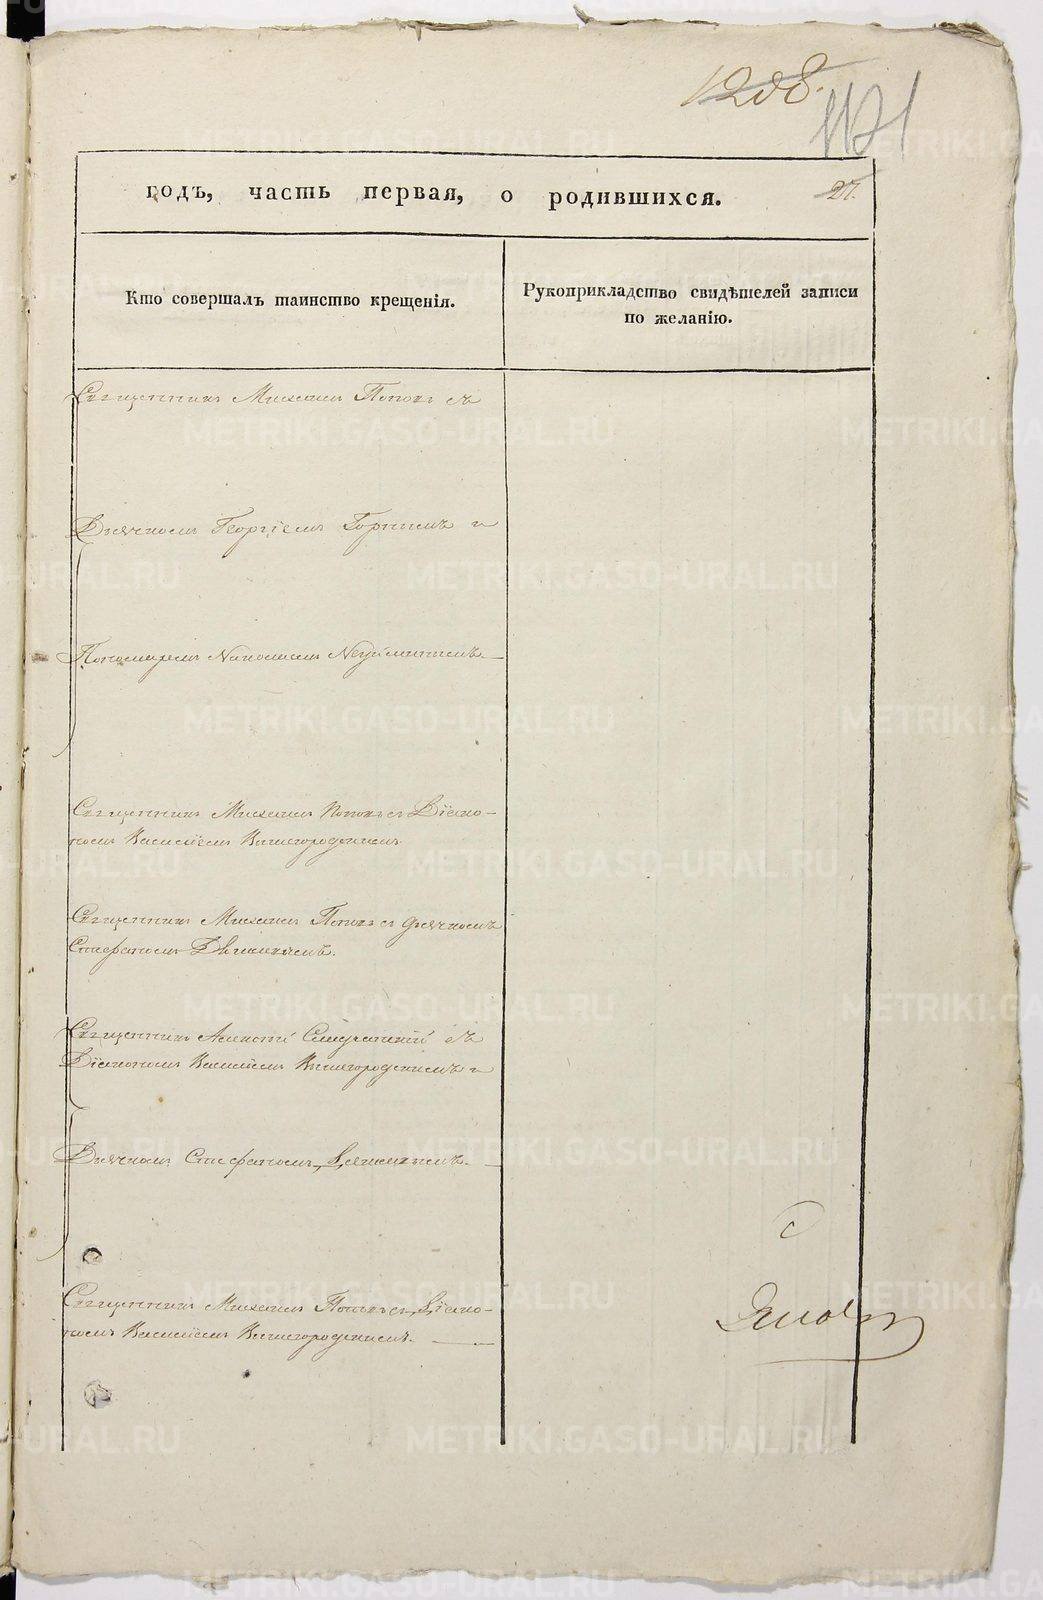 1208.
1171
годъ, часть первая, о родившихся.
27.
Кто совершалъ таинство крещенія.
Рукоприкладство свидѣтелей записи
по желанію.
Священникъ Михаилъ Поповъ съ
Дьячкомъ Георгіемъ и
Пономаремъ
Священникъ Михаилъ Поповъ с Діако-
номъ Василіемъ Вышегородскимъ
Священникъ Михаилъ Поповъ с дьячкомъ
Стефаномъ
Священникъ Алексѣй съ
Діакономъ Василіемъ Вышегородскимъ и
Дьячкомъ Стефаномъ
с
Священникъ Михаилъ Поповъ с Діако-
номъ Василіемъ Вышегородскимъ.
METRIKI.GASO-URAL.RU